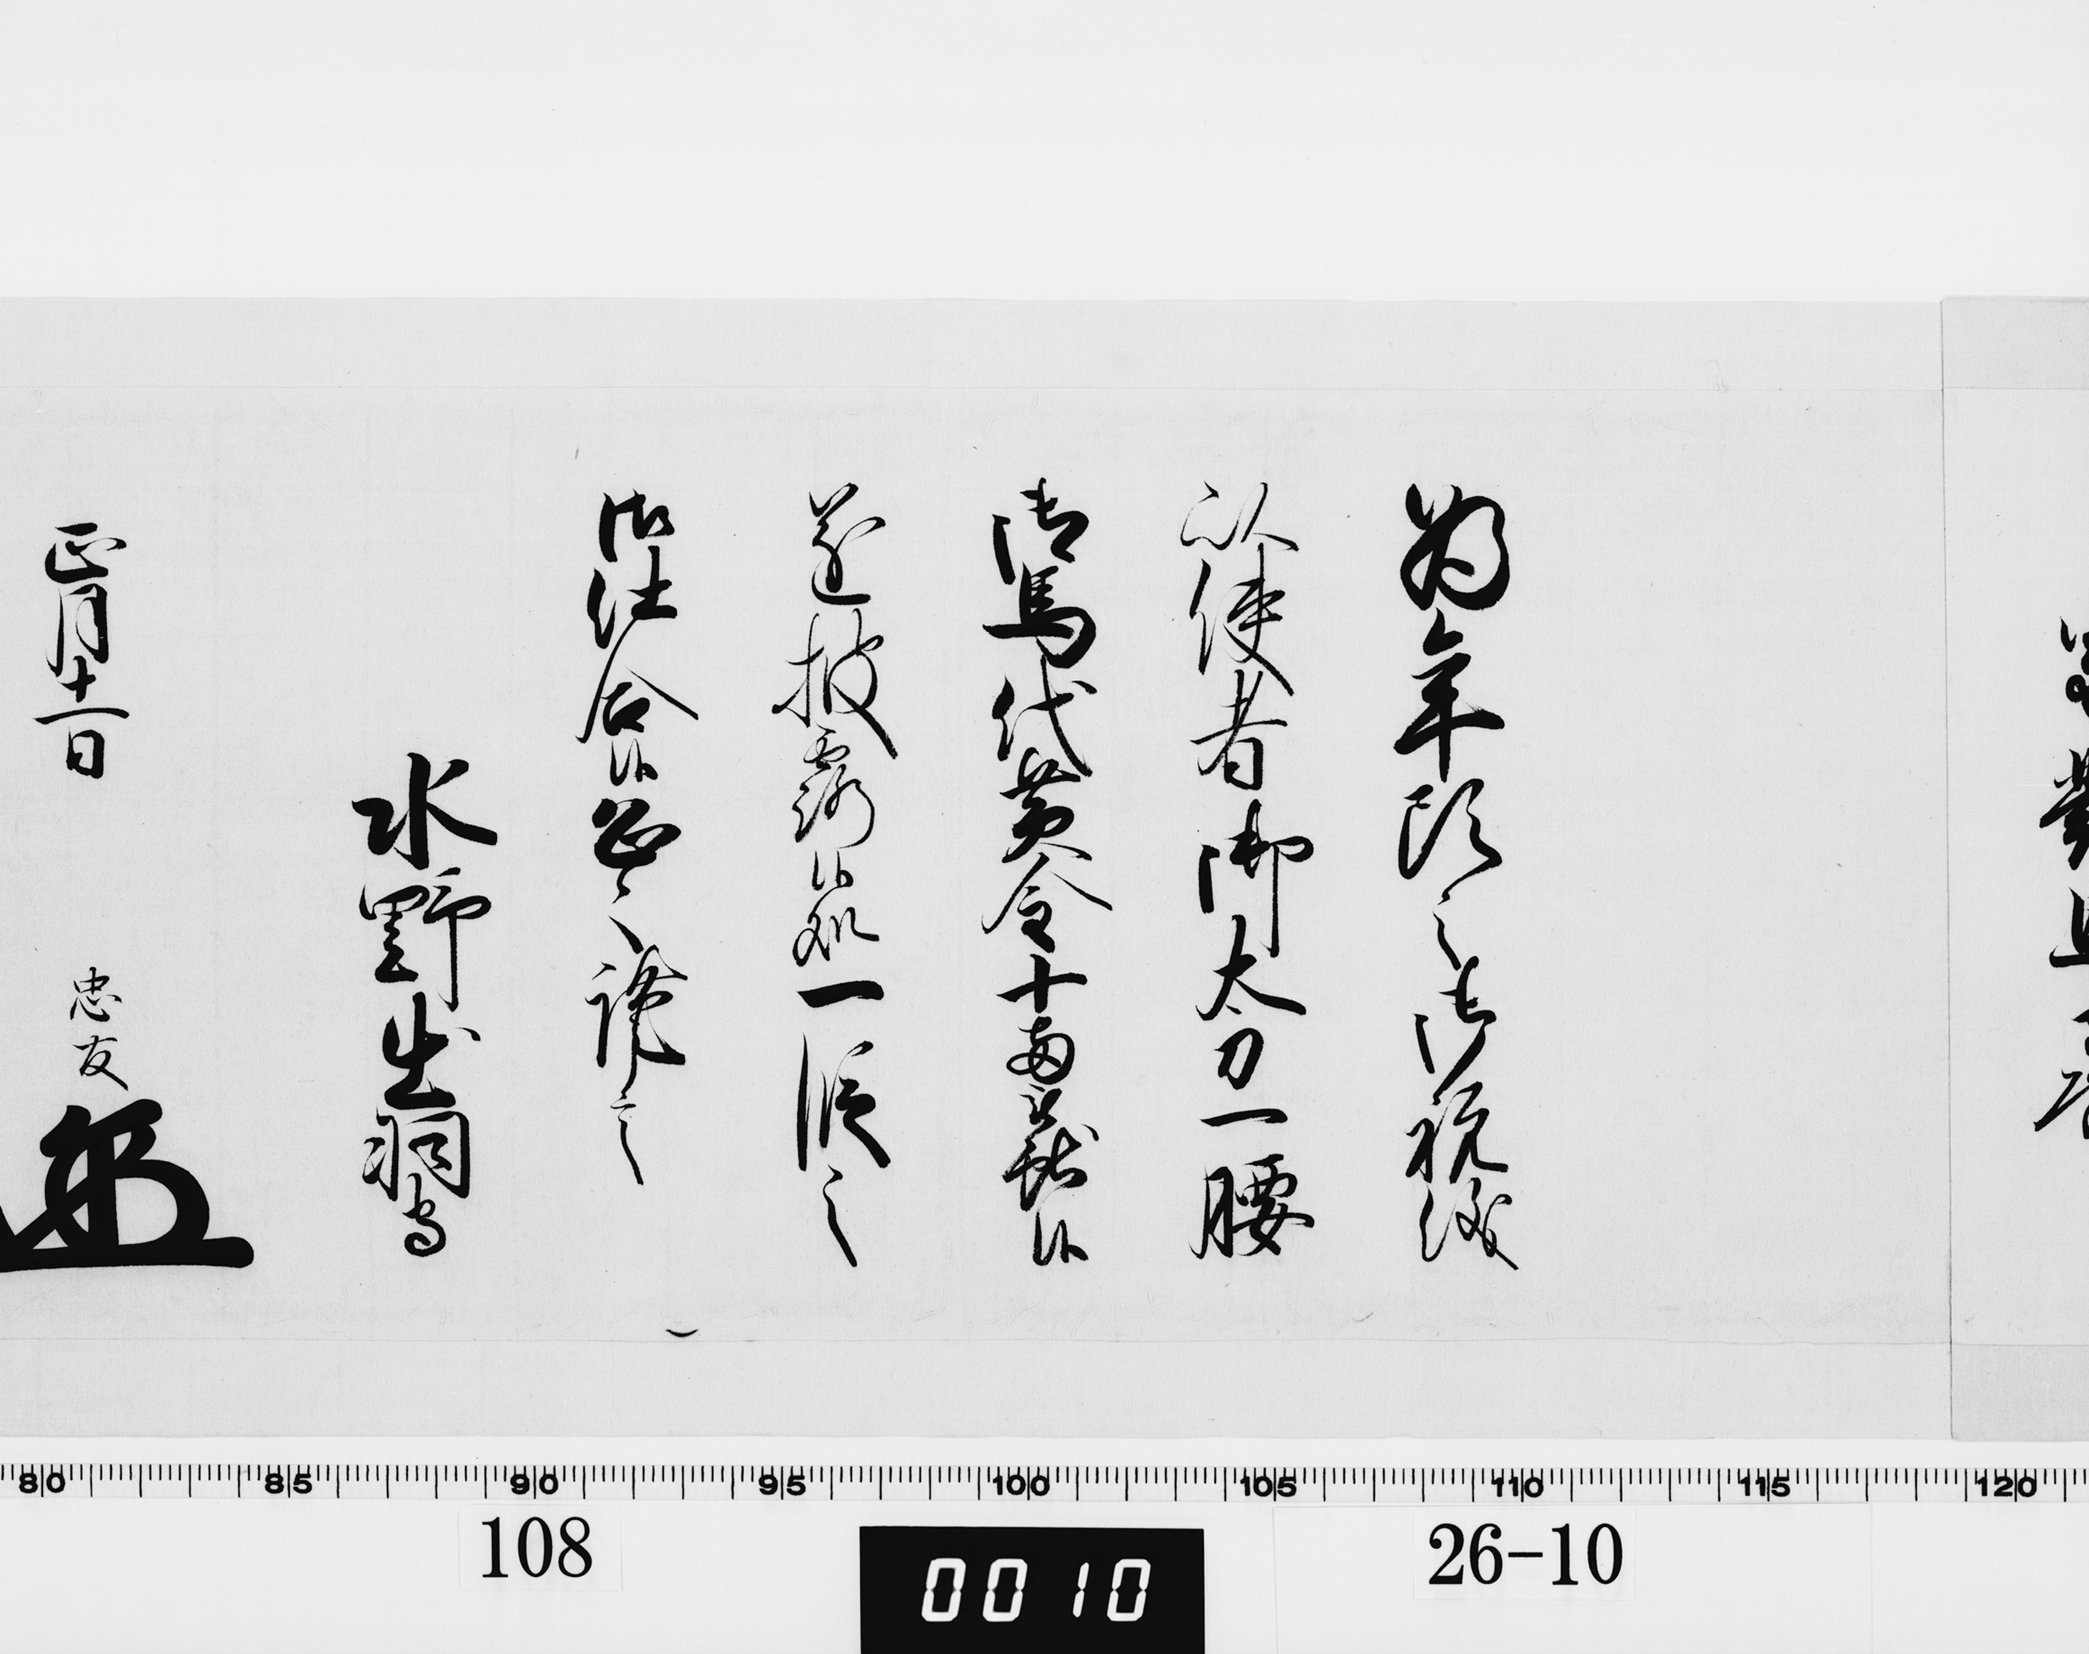 為年頭之御祝儀
以使者御太刀一腰
御馬代黄金十両被献候
遂披露候処一段之
御仕合候恐々謹言
水野出羽守
正月十一日
忠友
80 85 90 95 100 105 110 115 120
108
0010
26-10